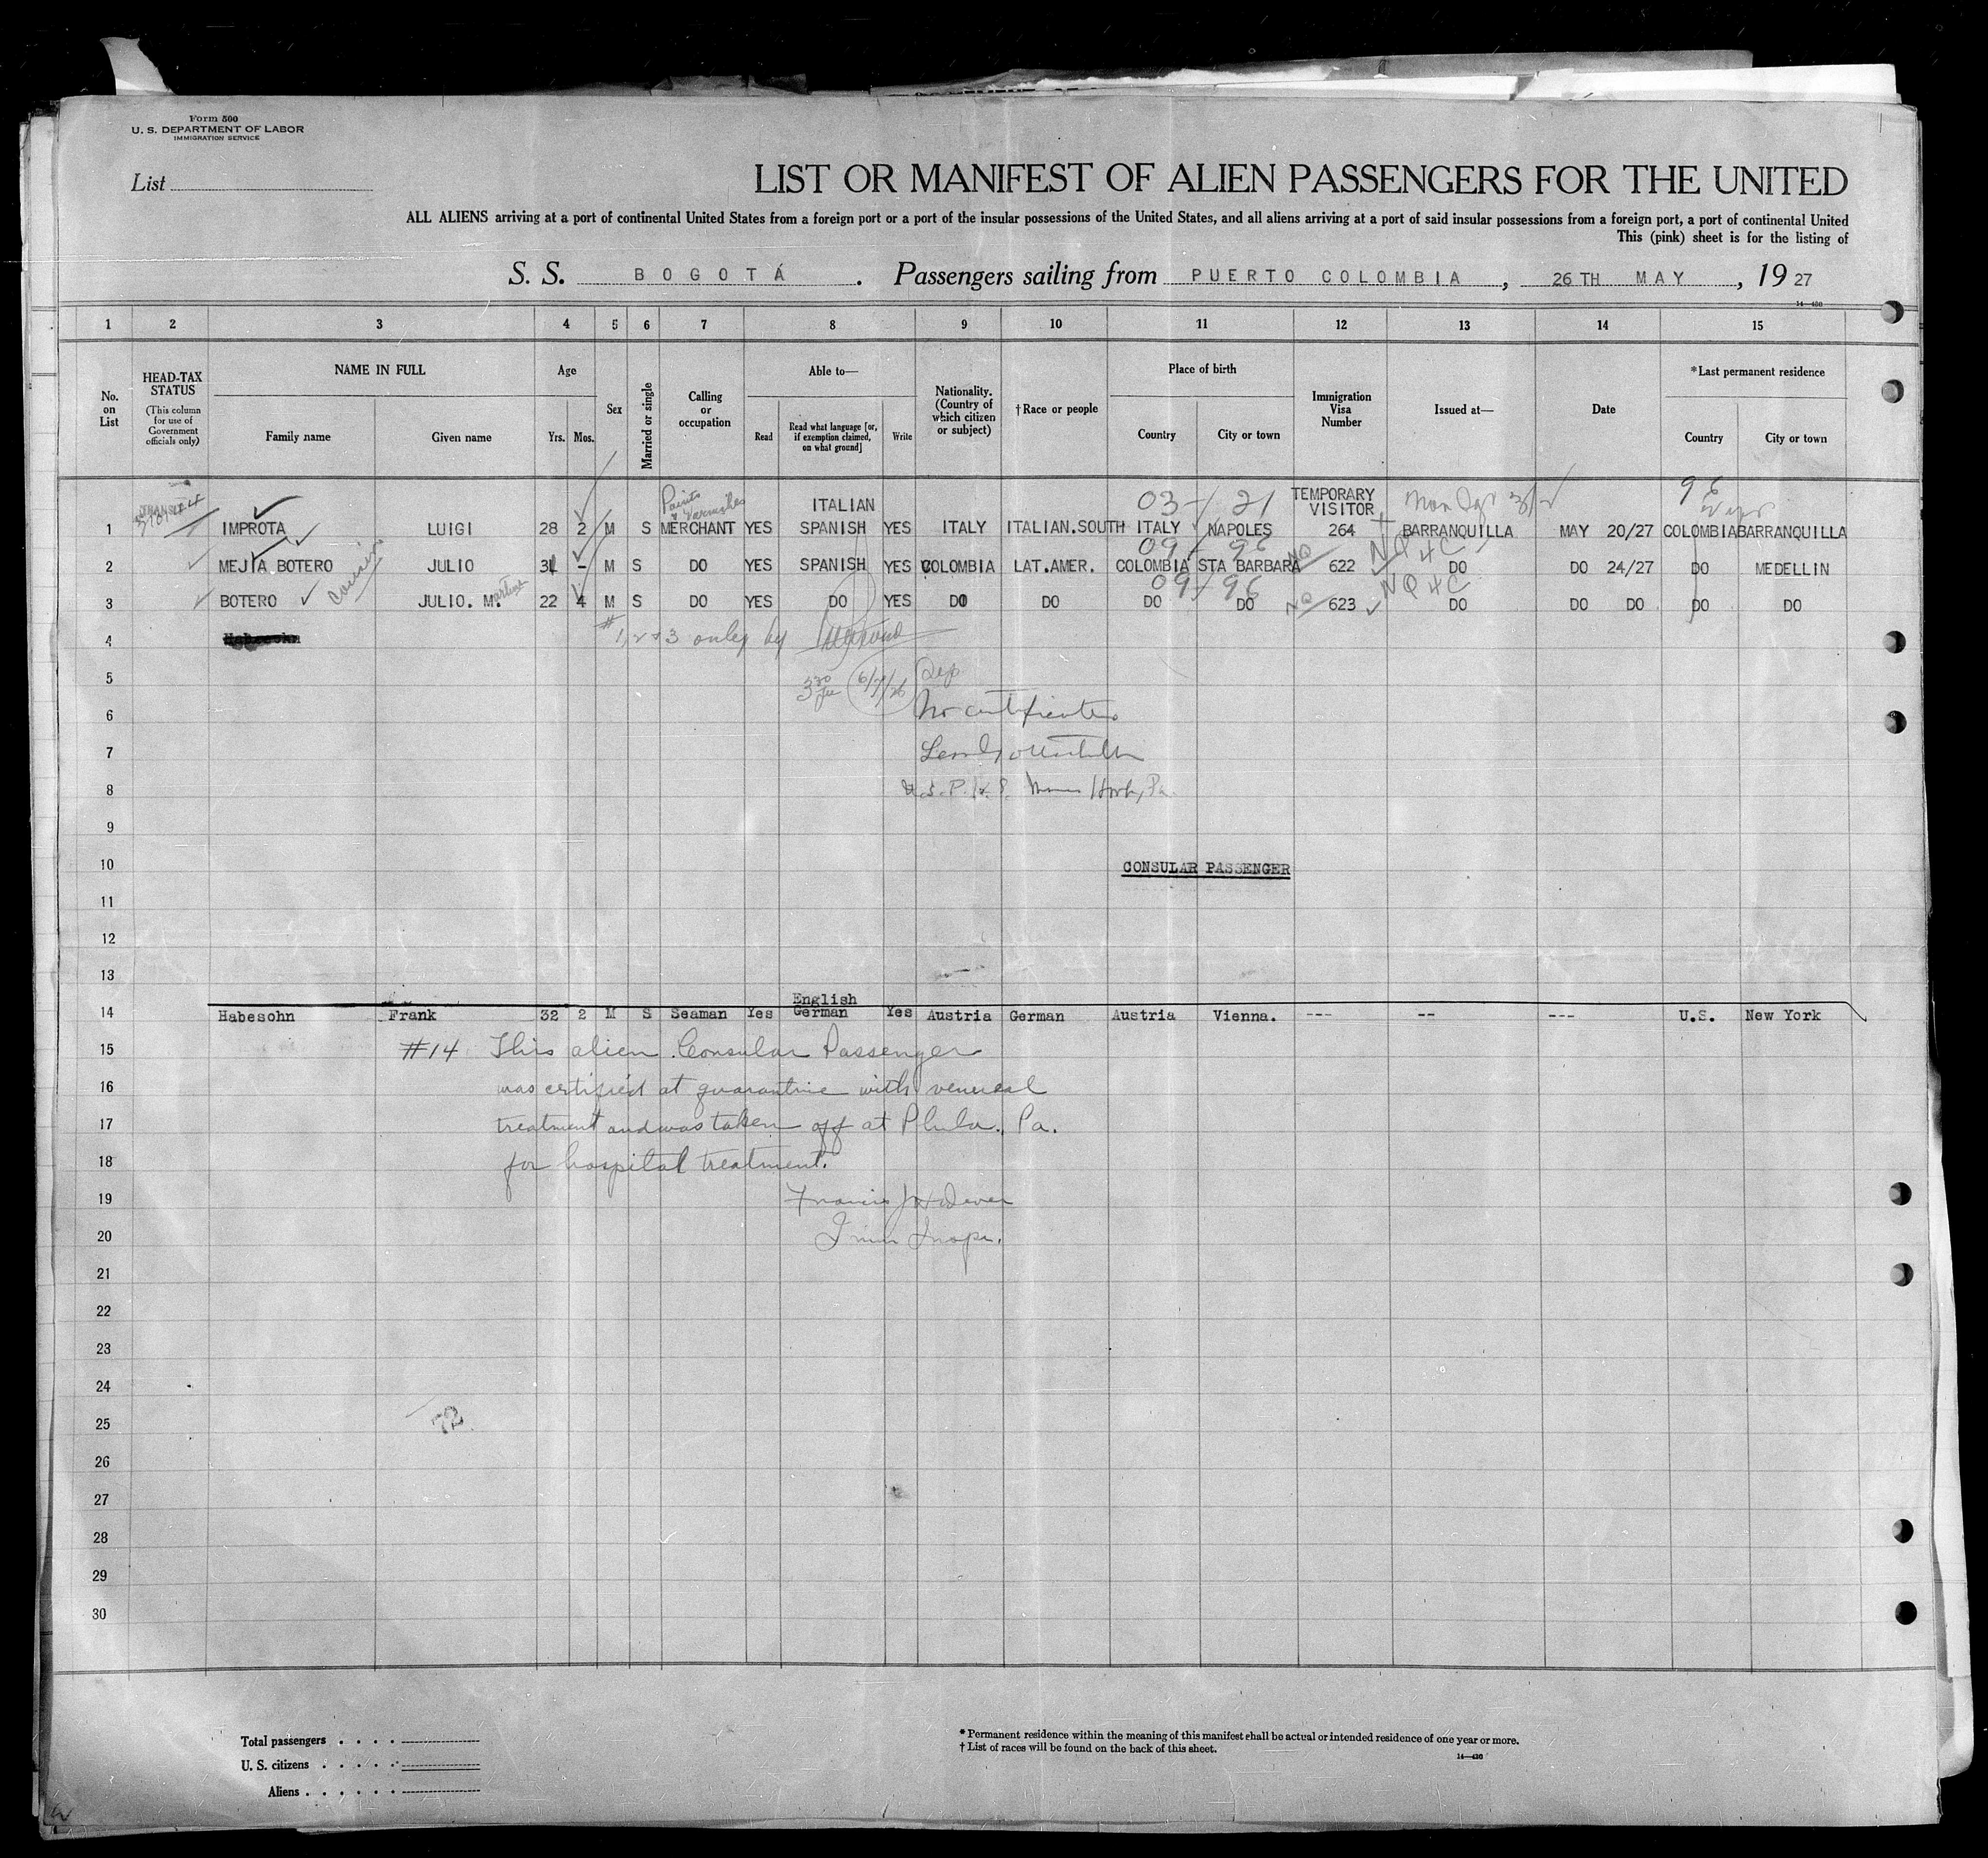 Form 500
U. S. DEPARTMENT OF LABOR
IMMIGRATION SERVICE
List
LIST OR MANIFEST OF ALIEN PASSENGERS FOR THE UNITED
ALL ALIENS arriving at a port of continental United States from a foreign port or a port of the insular possessions of the United States, and all aliens arriving at a port of said insular possessions from a foreign port, a port of continental United
This (pink) sheet is for the listing of
S. S. BOGOTÁ. Passengers sailing from PUERTO COLOMBIA, 26TH MAY, 19 27
14-430
1 2 3 4 5 6 7 8 9 10 11 12 13 14 15
No. on List
HEAD-TAX STATUS
(This column for use of Government officials only)
NAME IN FULL
Family name Given name
Age
Yrs. Mos.
Sex
Married or single
Calling or occupation
Able to—
Read Read what language [or, if exemption claimed, on what ground] Write
Nationality. (Country of which citizen or subject)
† Race or people
Place of birth
Country City or town
Immigration Visa Number
Issued at—
Date
*Last permanent residence
Country City or town
Paints & Varnishes ITALIAN 03 - 21 TEMPORARY VISITOR 96
1 IMPROTA LUIGI 28 2 M S MERCHANT YES SPANISH YES ITALY ITALIAN.SOUTH ITALY NAPOLES 264 BARRANQUILLA MAY 20/27 COLOMBIA BARRANQUILLA
09 - 96 NQ NQ 4C
2 MEJIA BOTERO cousin JULIO 31 - M S DO YES SPANISH YES COLOMBIA LAT.AMER. COLOMBIA STA BARBARA 622 DO DO 24/27 DO MEDELLIN
09 - 96 NQ NQ 4C
3 BOTERO JULIO. M. 22 4 M S DO YES DO YES DO DO DO DO 623 DO DO DO DO DO
4 Habesohn
# 1, 2 & 3 only by
5
6 No certificates
7
8
9
10 CONSULAR PASSENGER
11
12
13
English
14 Habesohn Frank 32 2 M S Seaman Yes German Yes Austria German Austria Vienna. --- -- --- U.S. New York
15 #14 This alien Consular Passenger
16 was certified at quarantine with venereal
17 treatment and was taken off at Phila., Pa.
18 for hospital treatment.
19 Francis
20 Imm Inspr.
21
22
23
24
25 72
26
27
28
29
30
Total passengers
U. S. citizens
Aliens
* Permanent residence within the meaning of this manifest shall be actual or intended residence of one year or more.
† List of races will be found on the back of this sheet.
14-430